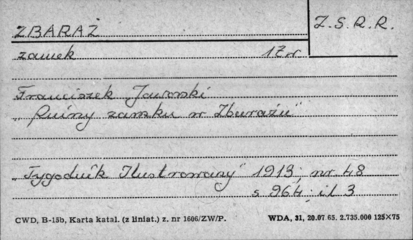 ZBARAŻ
Z.S.R.R.
zamek 17 w.
Franciszek Jaworski
„Ruiny zamku w Zbarażu"
„Tygodnik Ilustrowany" 1913, nr. 48
s 964; il 3
CWD, B-15b, Karta katal. (z liniat.) z. nr 1606/ZW/P. WDA, 31, 20.07 65. 2.735.000 125×75